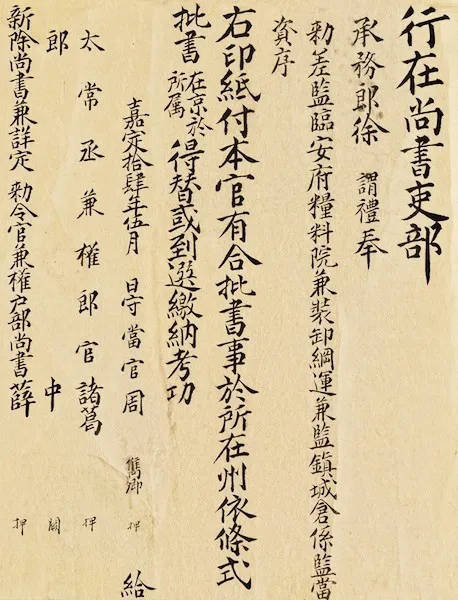 行在尚書吏部
承務郎徐　謂禮奉
勑差監臨安府糧料院兼裝卸綱運兼監鎮城倉係監當
資序
右印紙付本官有合批書事於所在州依條式
批書在京於所属得替或到選繳納考功
嘉定拾肆年伍月　日守當官周　雋卿　押　給
太常丞兼權郎官諸葛　押
郎　中　闕
新除尚書兼詳定勑令官兼權戶部尚書薛　押